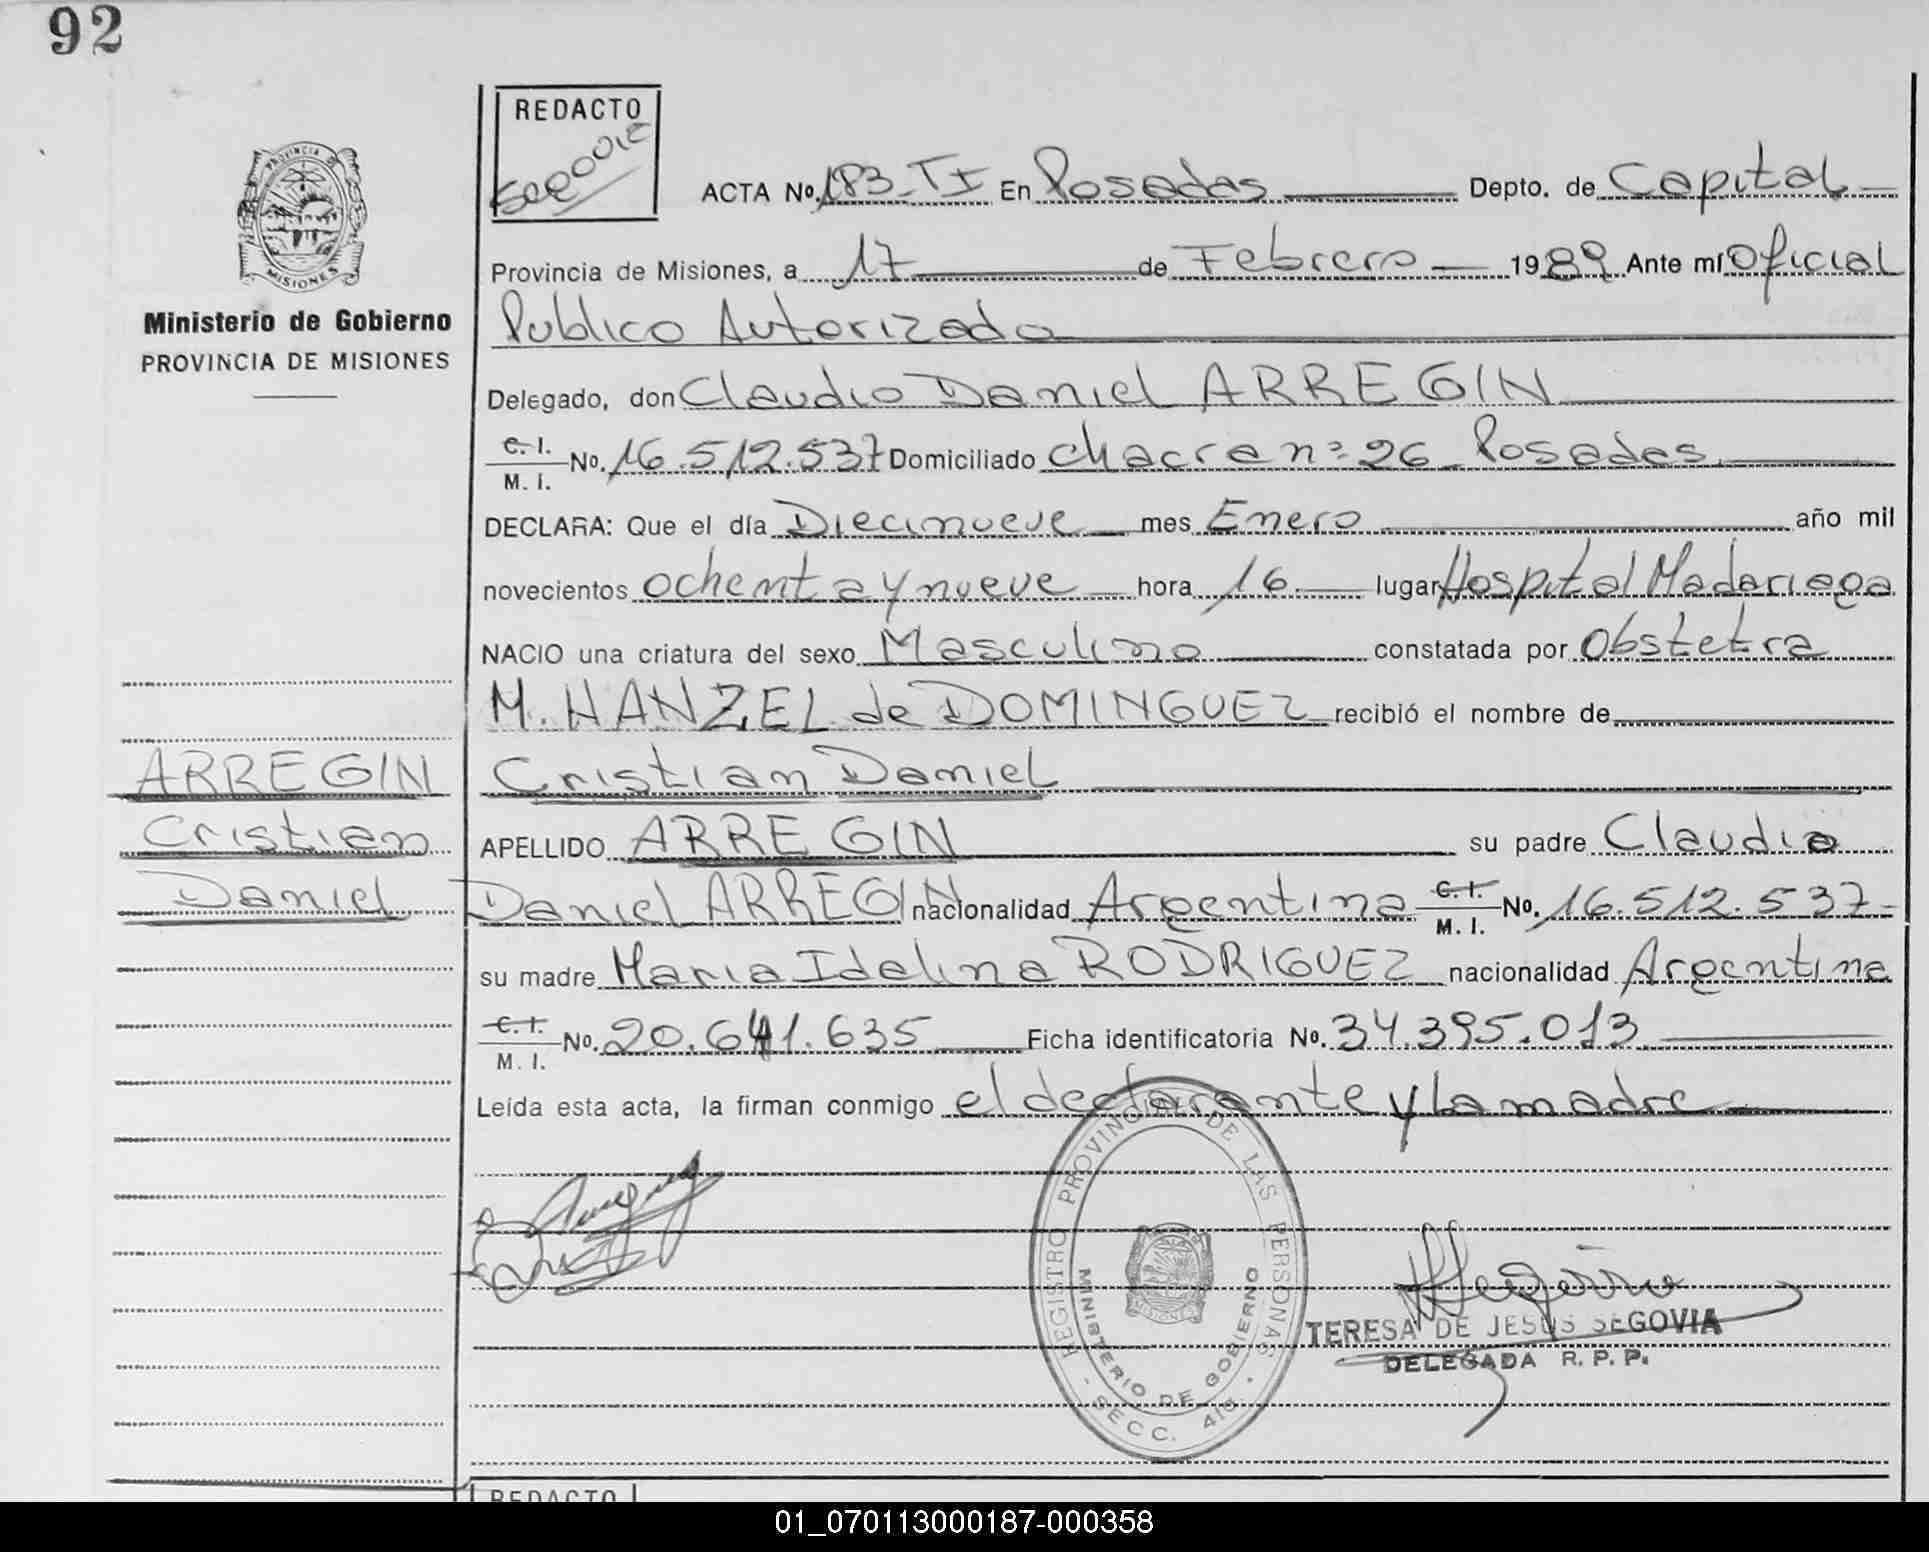 92
REDACTO
Segovia
PROVINCIA DE
MISIONES
Ministerio de Gobierno
PROVINCIA DE MISIONES
ACTA No. 183-TI En Posadas Depto. de Capital
Provincia de Misiones, a 17 de Febrero 1989 Ante mí Oficial
Publico Autorizado
Delegado, don Claudio Daniel ARREGIN
C. I. / M. I. No. 16.512.537 Domiciliado chacra nº 26 Posadas
DECLARA: Que el día Diecinueve mes Enero año mil
novecientos ochenta y nueve hora 16 lugar Hospital Madariaga
NACIO una criatura del sexo Masculino constatada por Obstetra
M. HANZEL de DOMINGUEZ recibió el nombre de
ARREGIN Cristian Daniel
Cristian APELLIDO ARREGIN su padre Claudio
Daniel Daniel ARREGIN nacionalidad Argentina C. I. / M. I. No. 16.512.537
su madre Maria Idalina RODRIGUEZ nacionalidad Argentina
C. I. / M. I. No. 20.641.635 Ficha identificatoria No. 34.395.013
Leída esta acta, la firman conmigo el declarante y la madre
REGISTRO PROVINCIAL DE LAS PERSONAS
MINISTERIO DE GOBIERNO
MISIONES
SECC. 4ta.
TERESA DE JESUS SEGOVIA
DELEGADA R. P. P.
REDACTO
01_070113000187-000358